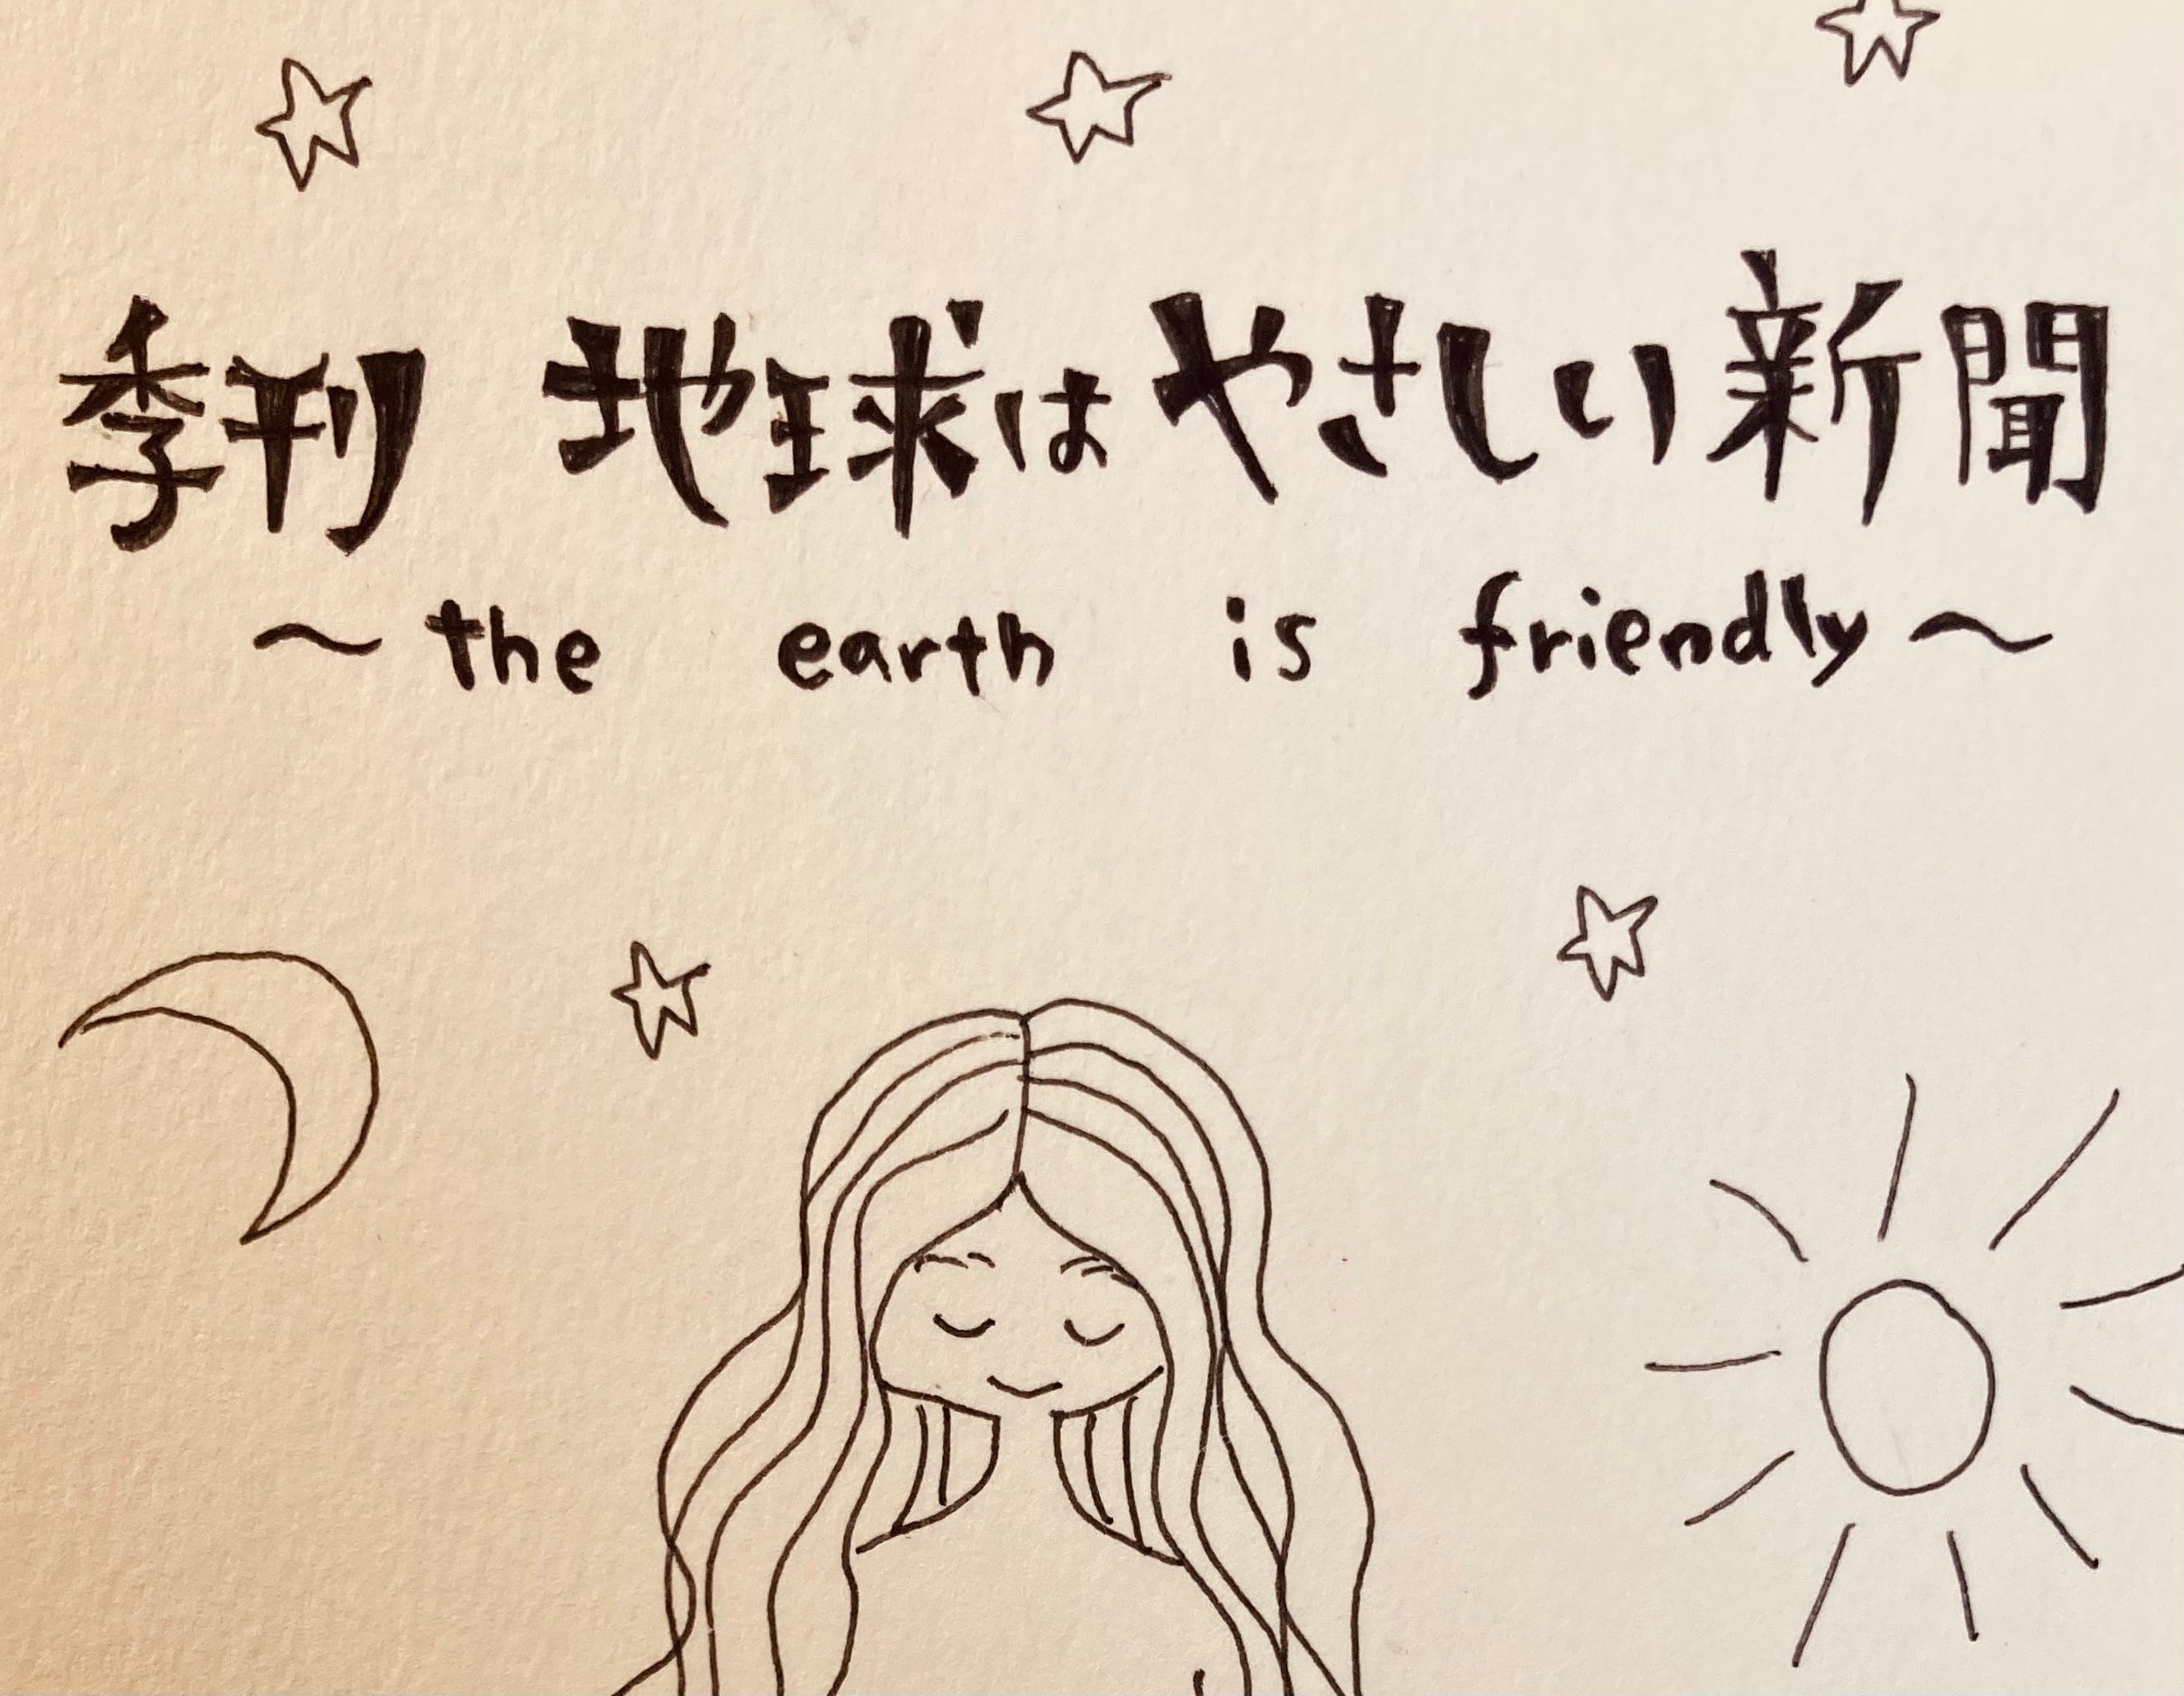 季刊 地球はやさしい新聞
〜the earth is friendly〜